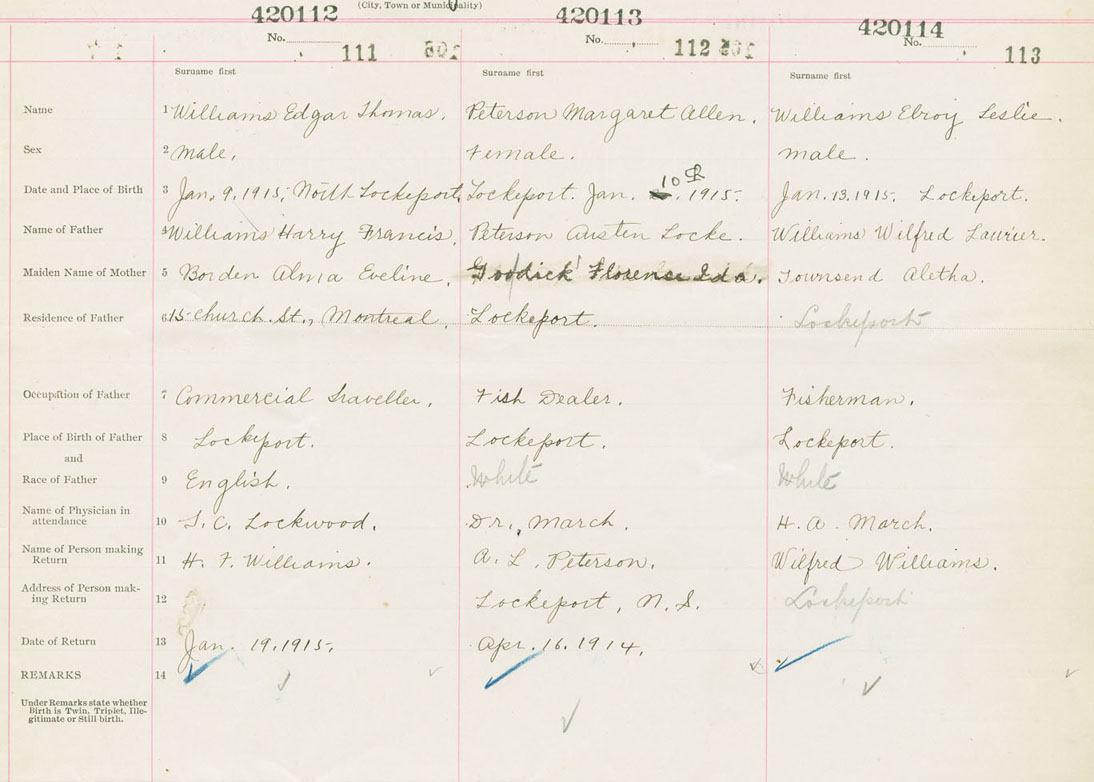 (City, Town or Municipality)
420112 420113 420114
No. 111 No. 112 No. 113
Surname first Surname first Surname first
Name 1 Williams Edgar Thomas. Peterson Margaret Allen. Williams Elroy Leslie.
Sex 2 Male. Female. male.
Date and Place of Birth 3 Jan. 9. 1915, North Lockeport. Lockeport. Jan. 10th. 1915. Jan. 13. 1915. Lockeport.
Name of Father 4 Williams Harry Francis. Peterson Austen Locke. Williams Wilfred Laurier.
Maiden Name of Mother 5 Borden Alma Eveline. Goodick Florense Ida. Townsend Aletha.
Residence of Father 6 15 Church St., Montreal. Lockeport. Lockeport
Occupation of Father 7 Commercial Traveller. Fish Dealer. Fisherman.
Place of Birth of Father 8 Lockeport. Lockeport. Lockeport.
and
Race of Father 9 English. White White
Name of Physician in
attendance 10 Lockwood. Dr. March. H. A. March.
Name of Person making
Return 11 H. F. Williams. A. L. Peterson. Wilfred Williams.
Address of Person mak-
ing Return 12 Lockeport, N. S. Lockeport
Date of Return 13 Jan. 19. 1915. Apr. 16. 1914.
REMARKS 14
Under Remarks state whether
Birth is Twin, Triplet, Ille-
gitimate or Still-birth.